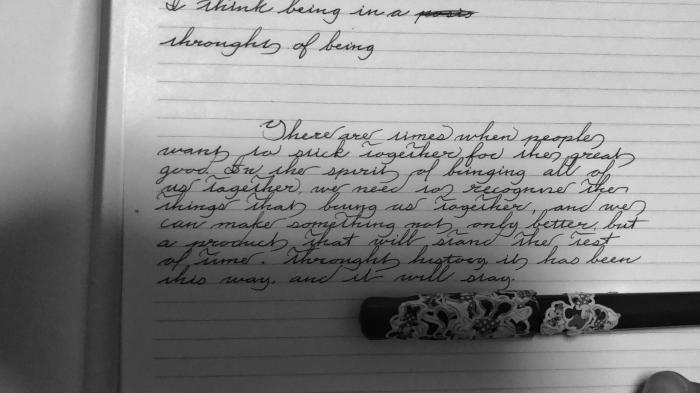 I think being in a
throught of being
There are times when people
want to stick together for the great
good. In the spirit of bringing all of
us together, we need to recognise the
things that bring us together, and we
can make something not only better, but
a product that will stand the test
of time. Throught history it has been
this way, and it will stay.